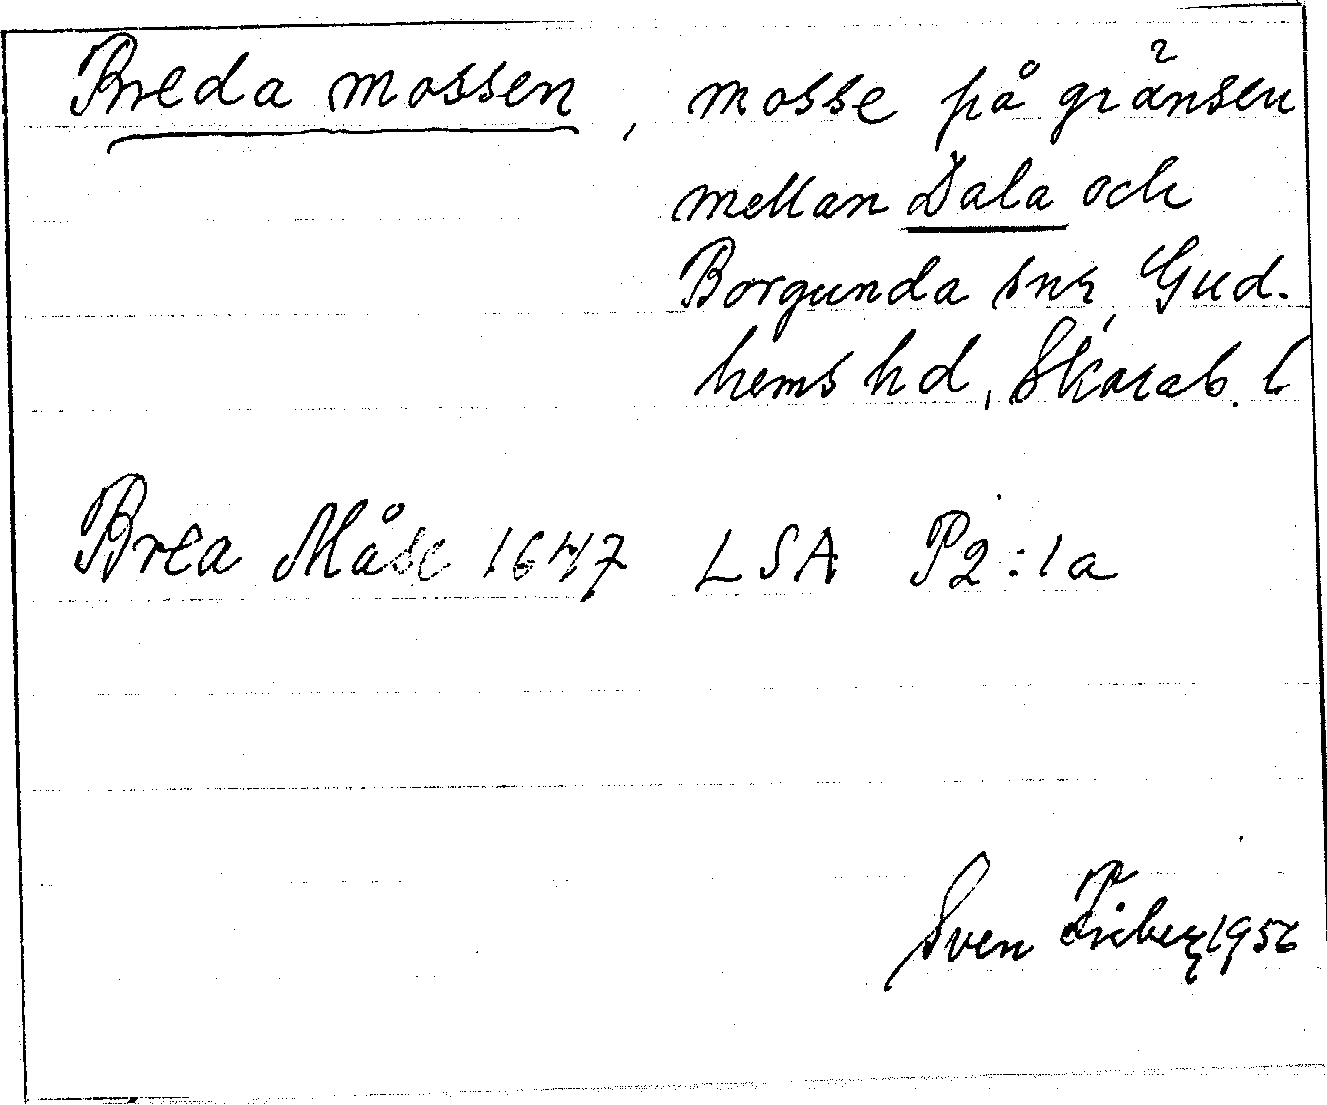 Breda mossen, mosse på gränsen
mellan Dala och
Borgunda snr, Gud.
hems hd, Skarab. l
Brea Måse 1647 LSA P2:1a
Sven Friberg 1956